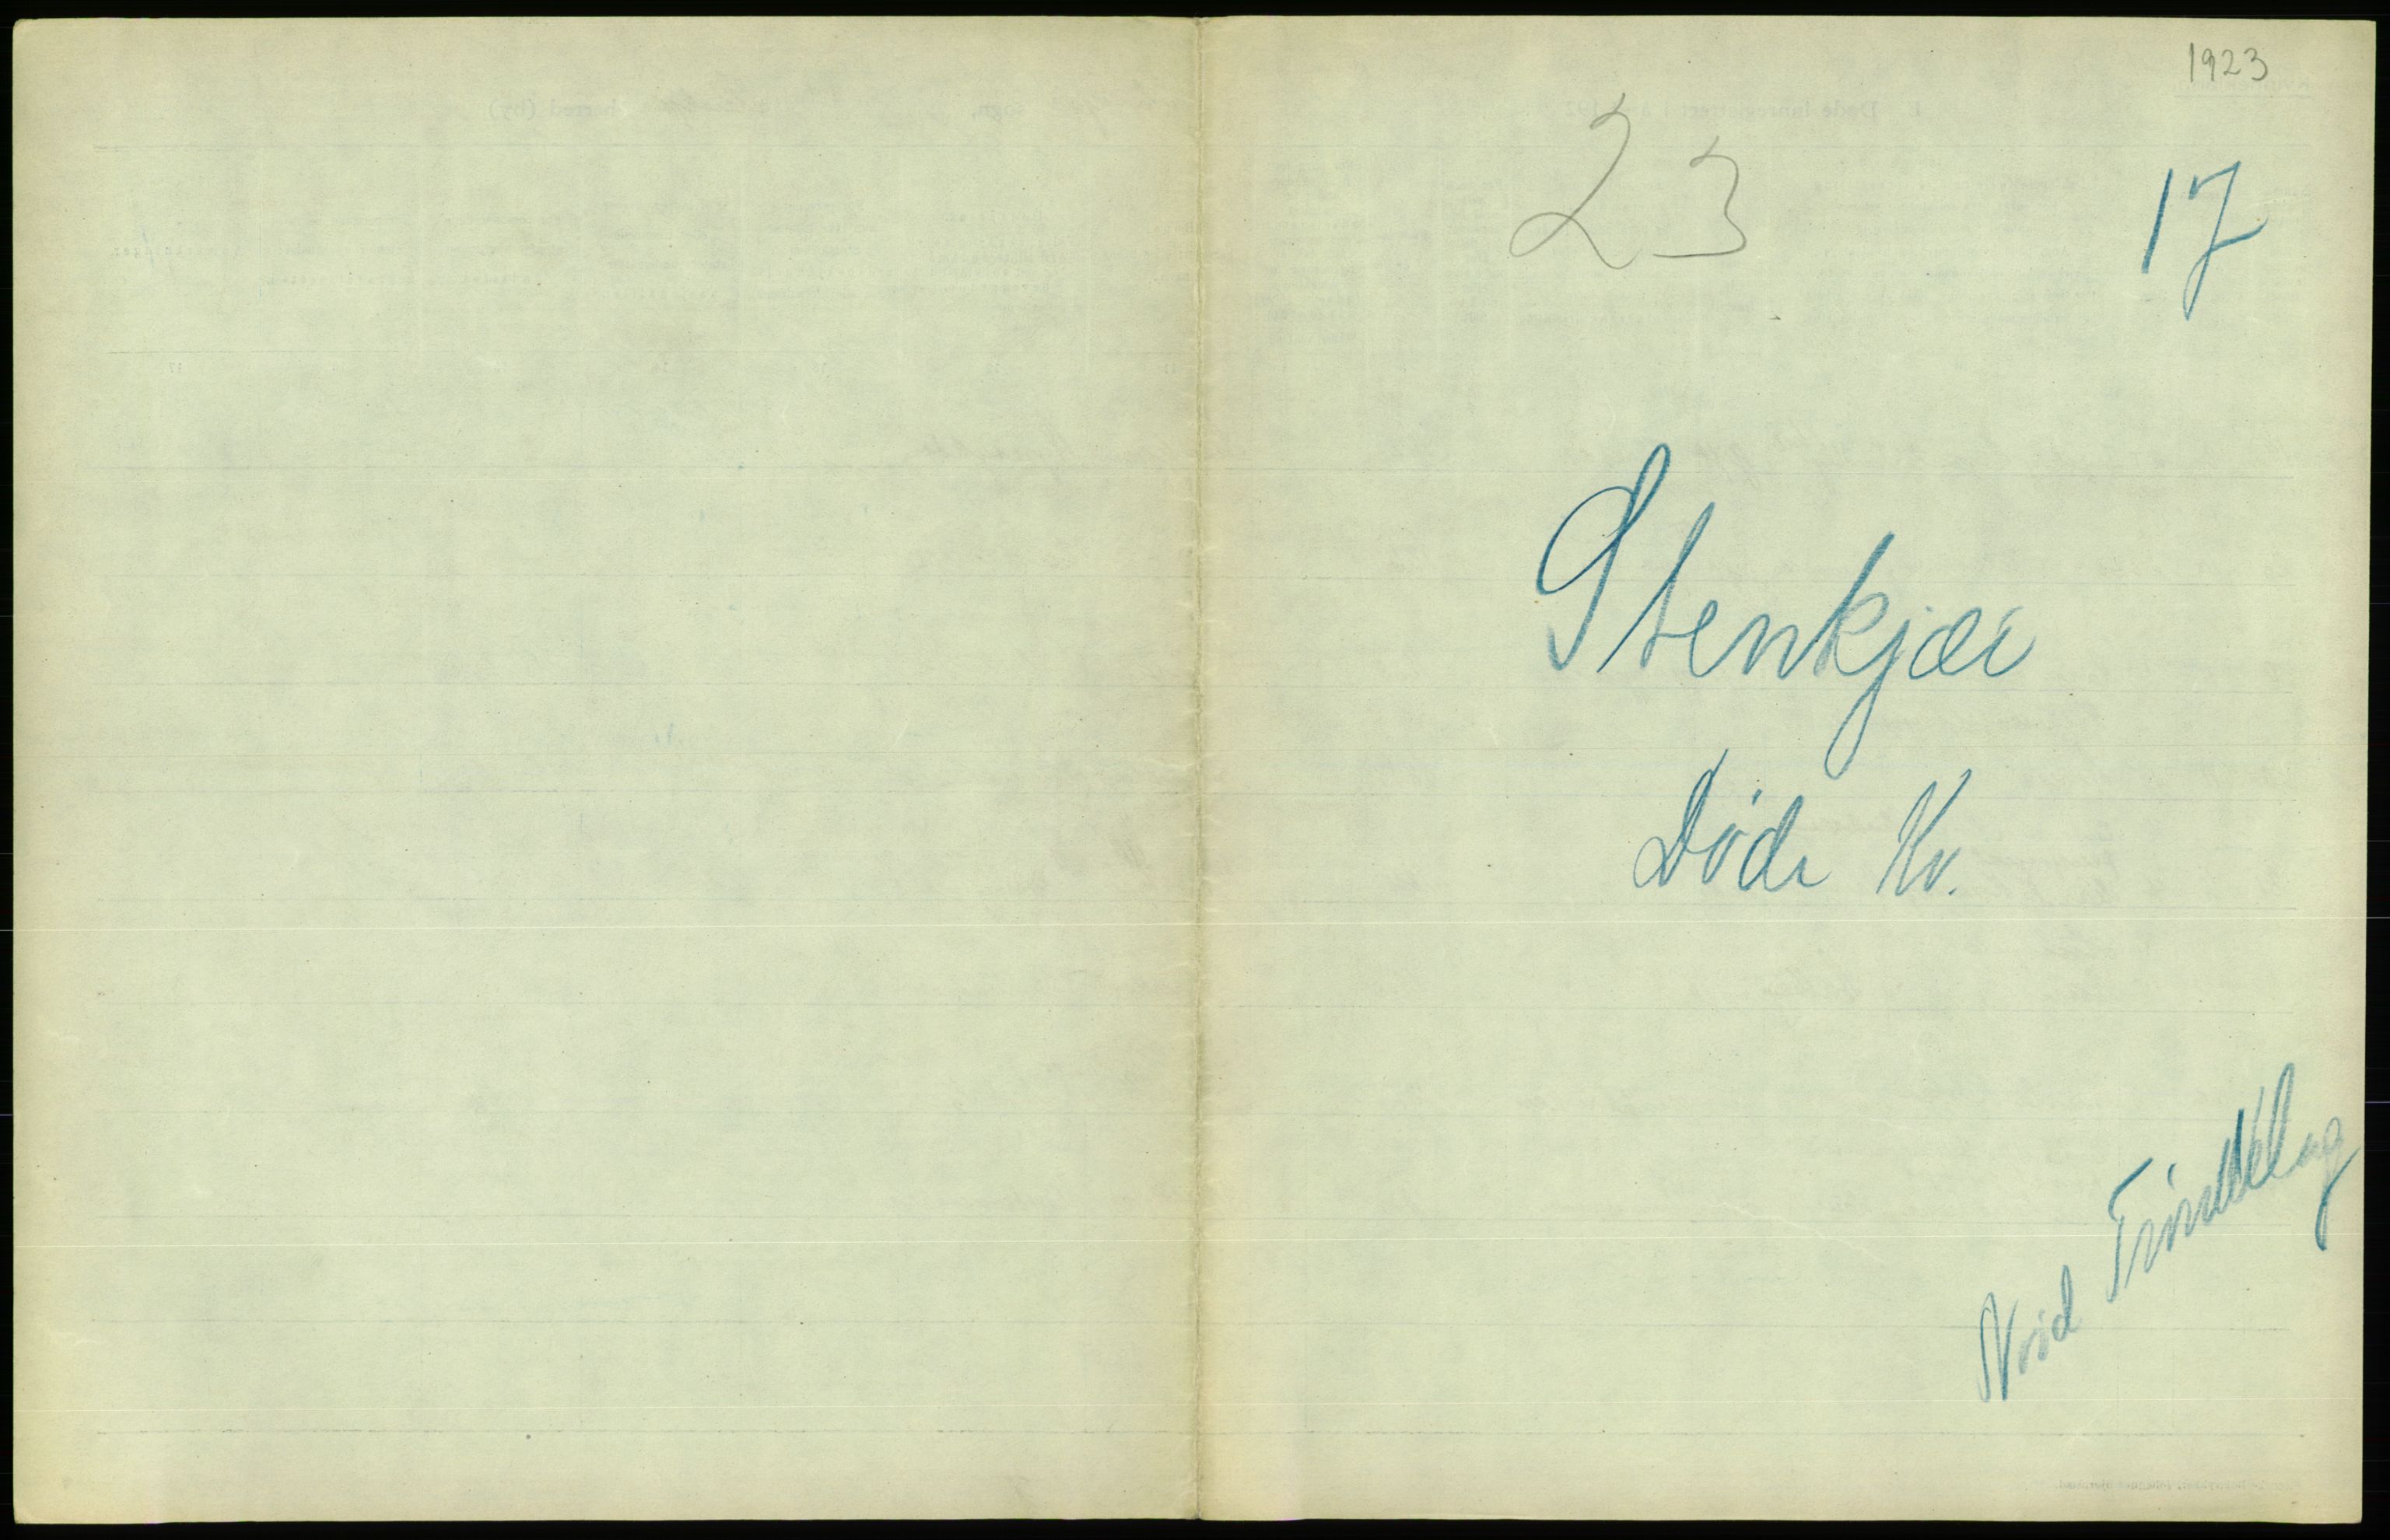 1923
23
17
Stenkjær
Døde Kv.
Nord Trøndelag